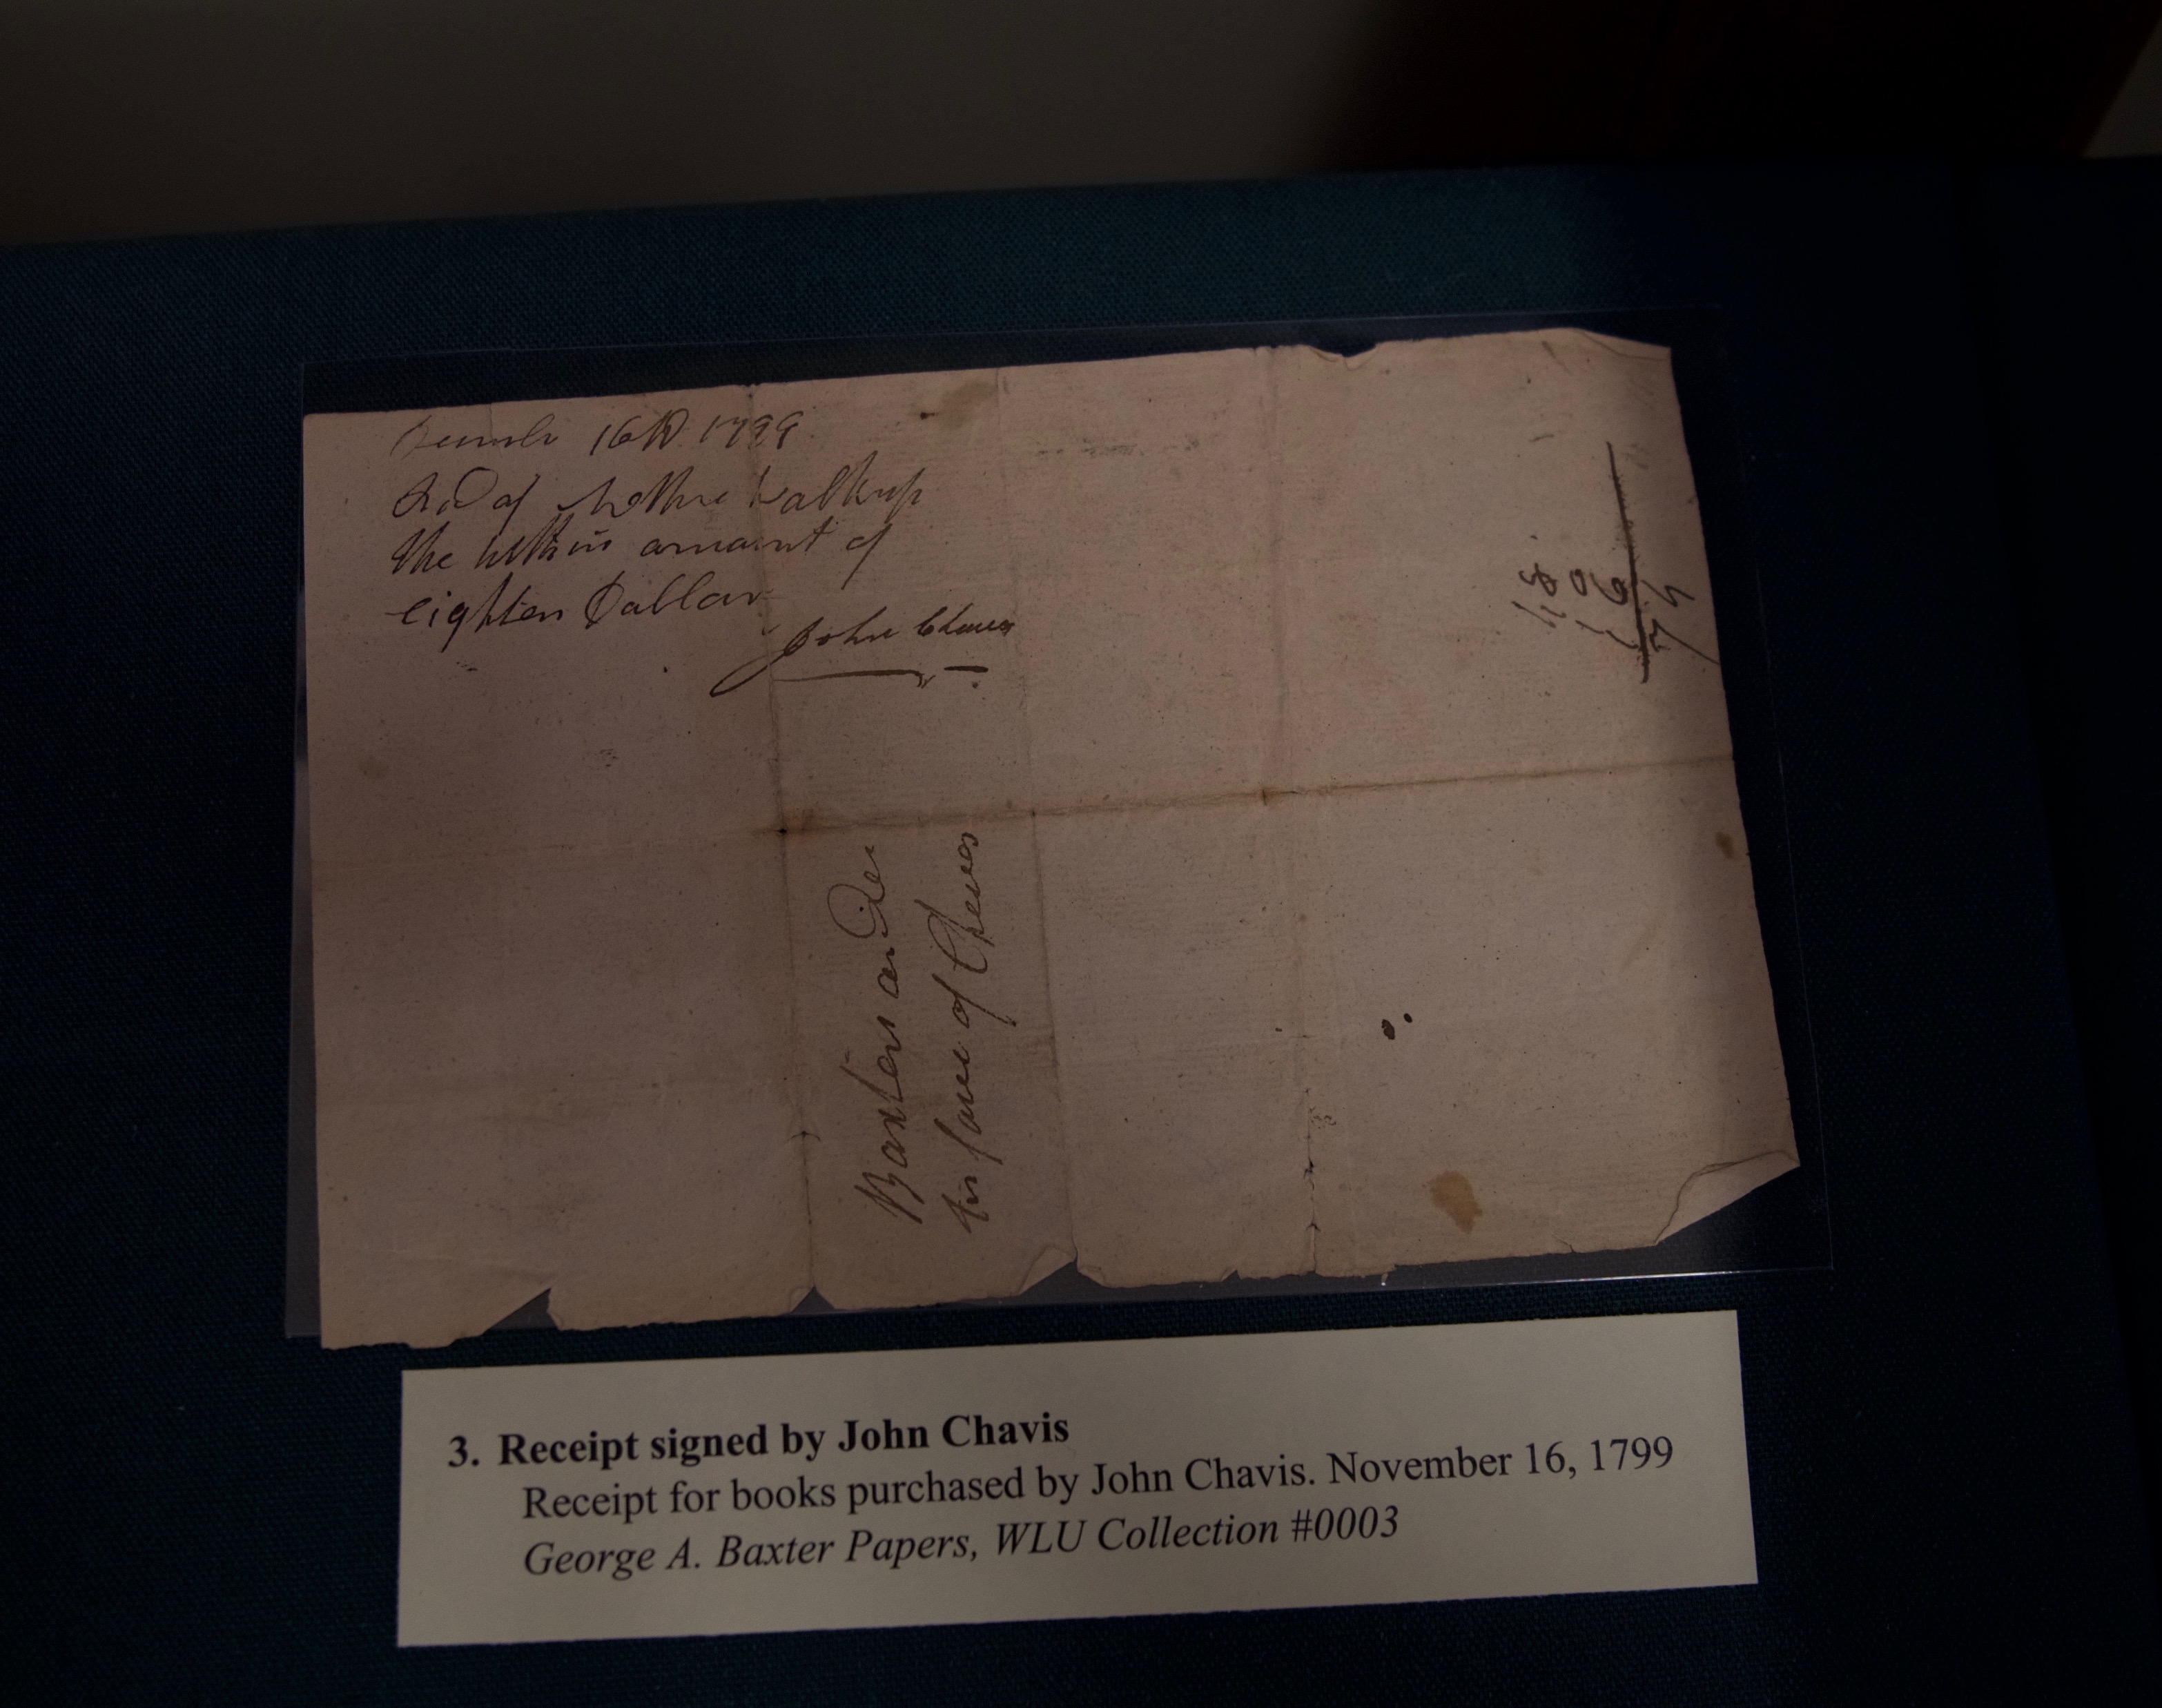 16th 1799
Recd of Walkup
the within amount of
eighten Dollar
John Chaves
Baxters order
in favue of Cheves
3. Receipt signed by John Chavis
Receipt for books purchased by John Chavis. November 16, 1799
George A. Baxter Papers, WLU Collection #0003